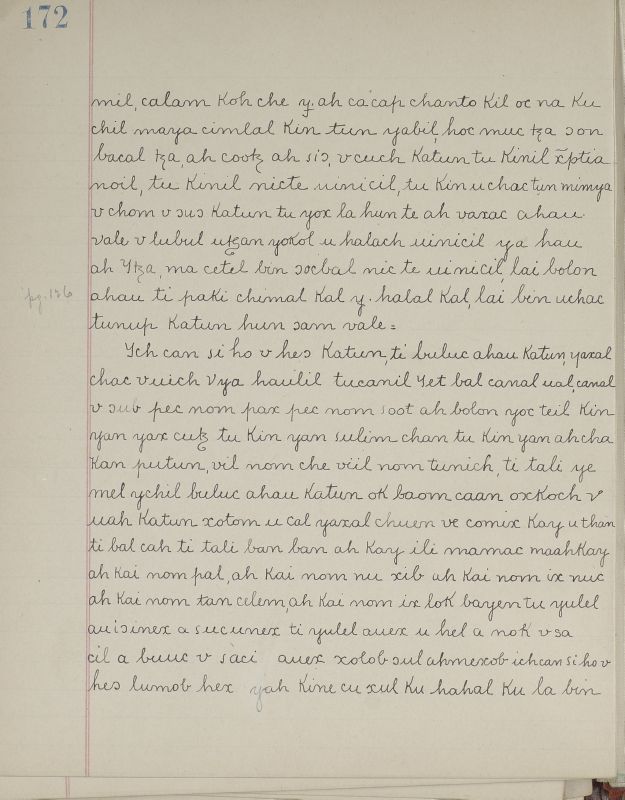 172
mil, calam Koh che y. ah cácap chanto Kil oc na Ku
chil maya cimlal Kin tun yabil, hoc muc tza ɔon
bacal tza, ah cootz ah siɔ, v cuch Katun tu Kinil x̃ptia
noil, tu Kinil nicte uinicil, tu Kin u chac tun mimya
v chom v ɔuɔ Katun tu yox la hun te ah vaxac ahau
vale v lubul utzan yokol u halach uinicil ya hau
ah Ytza, ma cetel bin ɔocbal nic te uinicil, lai bolon
pg. 126
ahau ti paki chimal Kal y. halal Kal, lai bin uchac
tunup Katun hun ɔam vale =
Ych can si ho v heɔ Katun, ti buluc ahau Katun, yaxal
chac v uich v ya haulil tucanil Yet bal canal ual, canal
v ɔub pec nom pax pec nom soot ah bolon yoc teil Kin
yan yax cutz tu Kin yan sulim chan tu Kin yan ah cha
Kan putun, vil nom che viil nom tunich, ti tali ye
mel ychil buluc ahau Katun oK baom caan ox Koch v
uah Katun xotom u cal yaxal chuen ve comix Kay u than
ti bal cah ti tali ban ban ah Kay ili mamac maah Kay
ah Kai nom pal, ah Kai nom nu xib ah Kai nom ix nuc
ah Kai nom tan celem, ah Kai nom ix loK bayen tu yulel
au iɔinex a sucunex ti yulel auex u hel a noK v sa
cil a buuc v saci auex xolob ɔul ahmexob ich can si ho v
heɔ lumob hex yah Kine cu xul Ku hahal Ku la bin